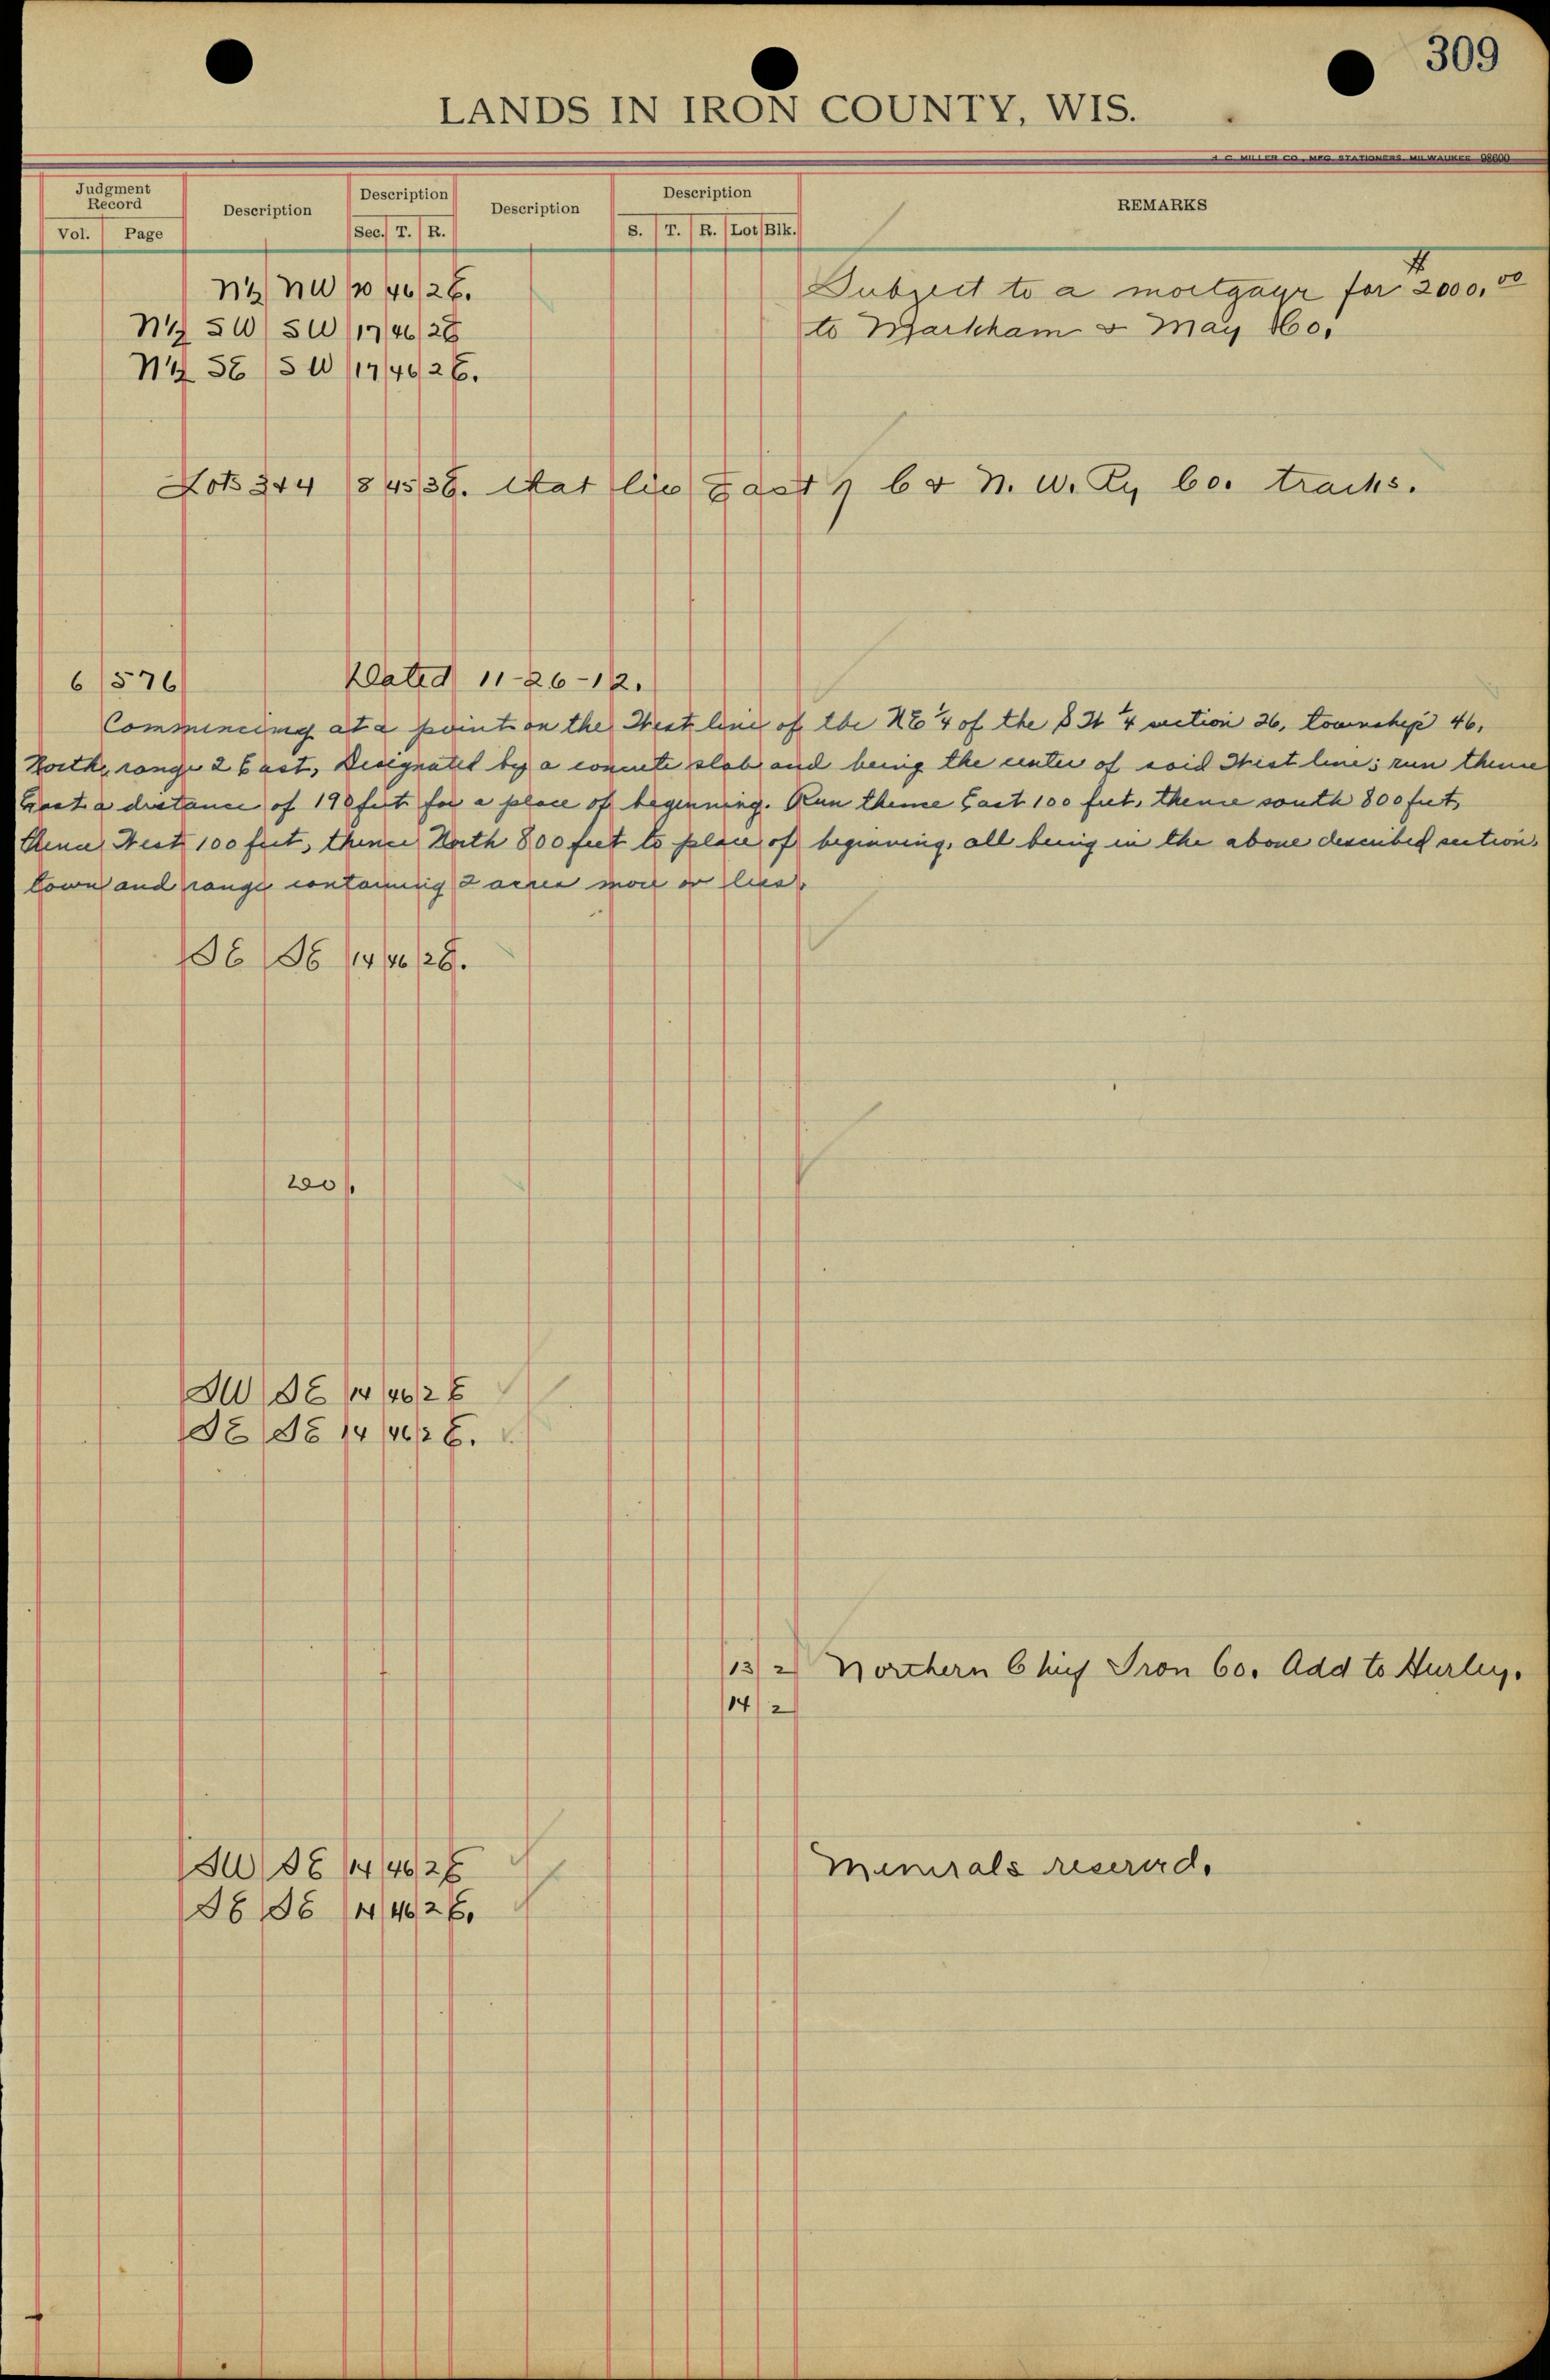 309
LANDS IN IRON COUNTY, WIS.
MILLER CO., MFG. STATIONERS, MILWAUKEE
Judgment Record Description Description Description Description REMARKS
Vol. Page Sec. T. R. S. T. R. Lot Blk.
N½ NW 20 46 2E. Subject to a mortgage for $2000.00
N½ SW SW 17 46 2E to Markham & May Co.
N½ SE SW 17 46 2E.
Lots 3+4 8 45 3E. that lie East of C & N. W. Ry Co. tracks.
6 576 Dated 11-26-12.
Commencing at a point on the West line of the NE¼ of the SW¼ section 26, township 46,
North, range 2 East, Designated by a concrete slab and being the center of said West line; run thence
East a distance of 190 feet for a place of beginning. Run thence East 100 feet, thence south 800 feet,
thence West 100 feet, thence North 800 feet to place of beginning, all being in the above described section,
town and range containing 2 acres more or less.
SE SE 14 46 2E.
SW SE 14 46 2E
SE SE 14 46 2E.
13 2 Northern Chief Iron Co. Add to Hurley.
14 2
SW SE 14 46 2E Minerals reserved.
SE SE 14 46 2E.